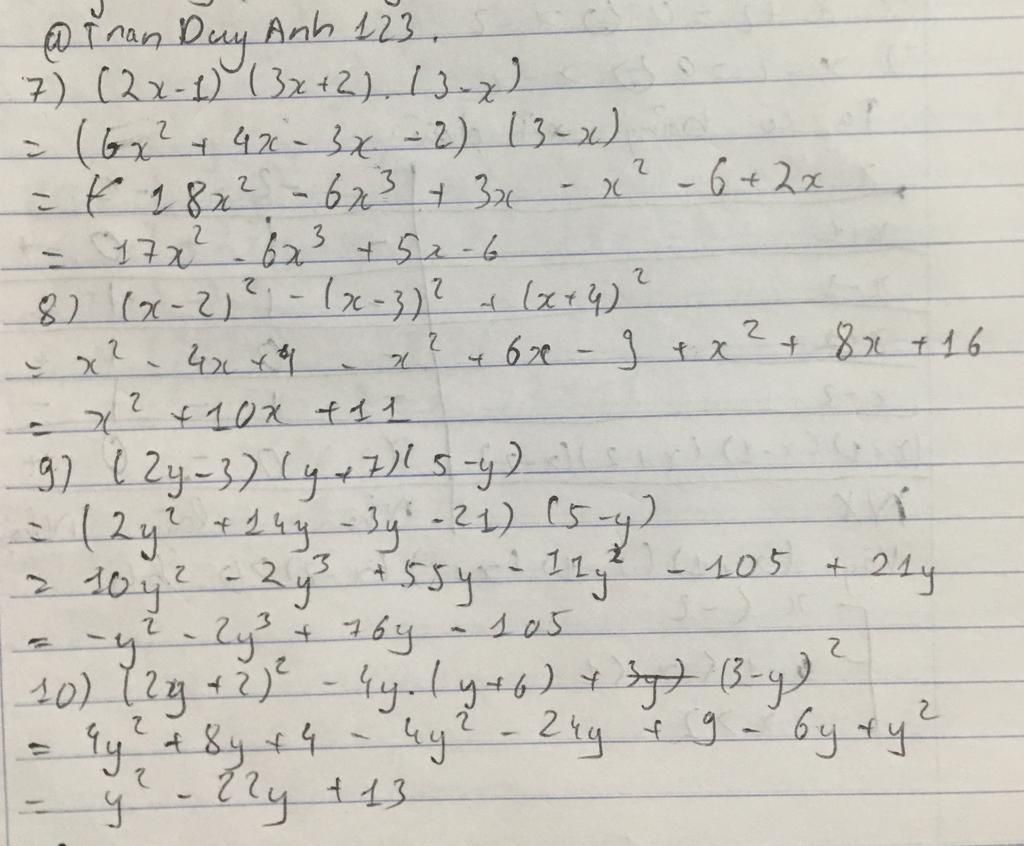 @Tran Duy Anh 123.
7) (2x-1) (3x+2). (3-x)
= (6x² + 4x - 3x - 2) (3-x)
= 18x² - 6x³ + 3x - x² - 6 + 2x
= 17x² - 6x³ + 5x - 6
8) (x-2)² - (x-3)² + (x+4)²
= x² - 4x + 4 - x² + 6x - 9 + x² + 8x + 16
= x² + 10x + 11
9) (2y-3) (y+7) (5-y)
= (2y² + 14y - 3y - 21) (5-y)
= 10y² - 2y³ + 55y - 11y² - 105 + 21y
= -y² - 2y³ + 76y - 105
10) (2y+2)² - 4y.(y+6) + (3-y)²
= 4y² + 8y + 4 - 4y² - 24y + 9 - 6y + y²
= y² - 22y + 13